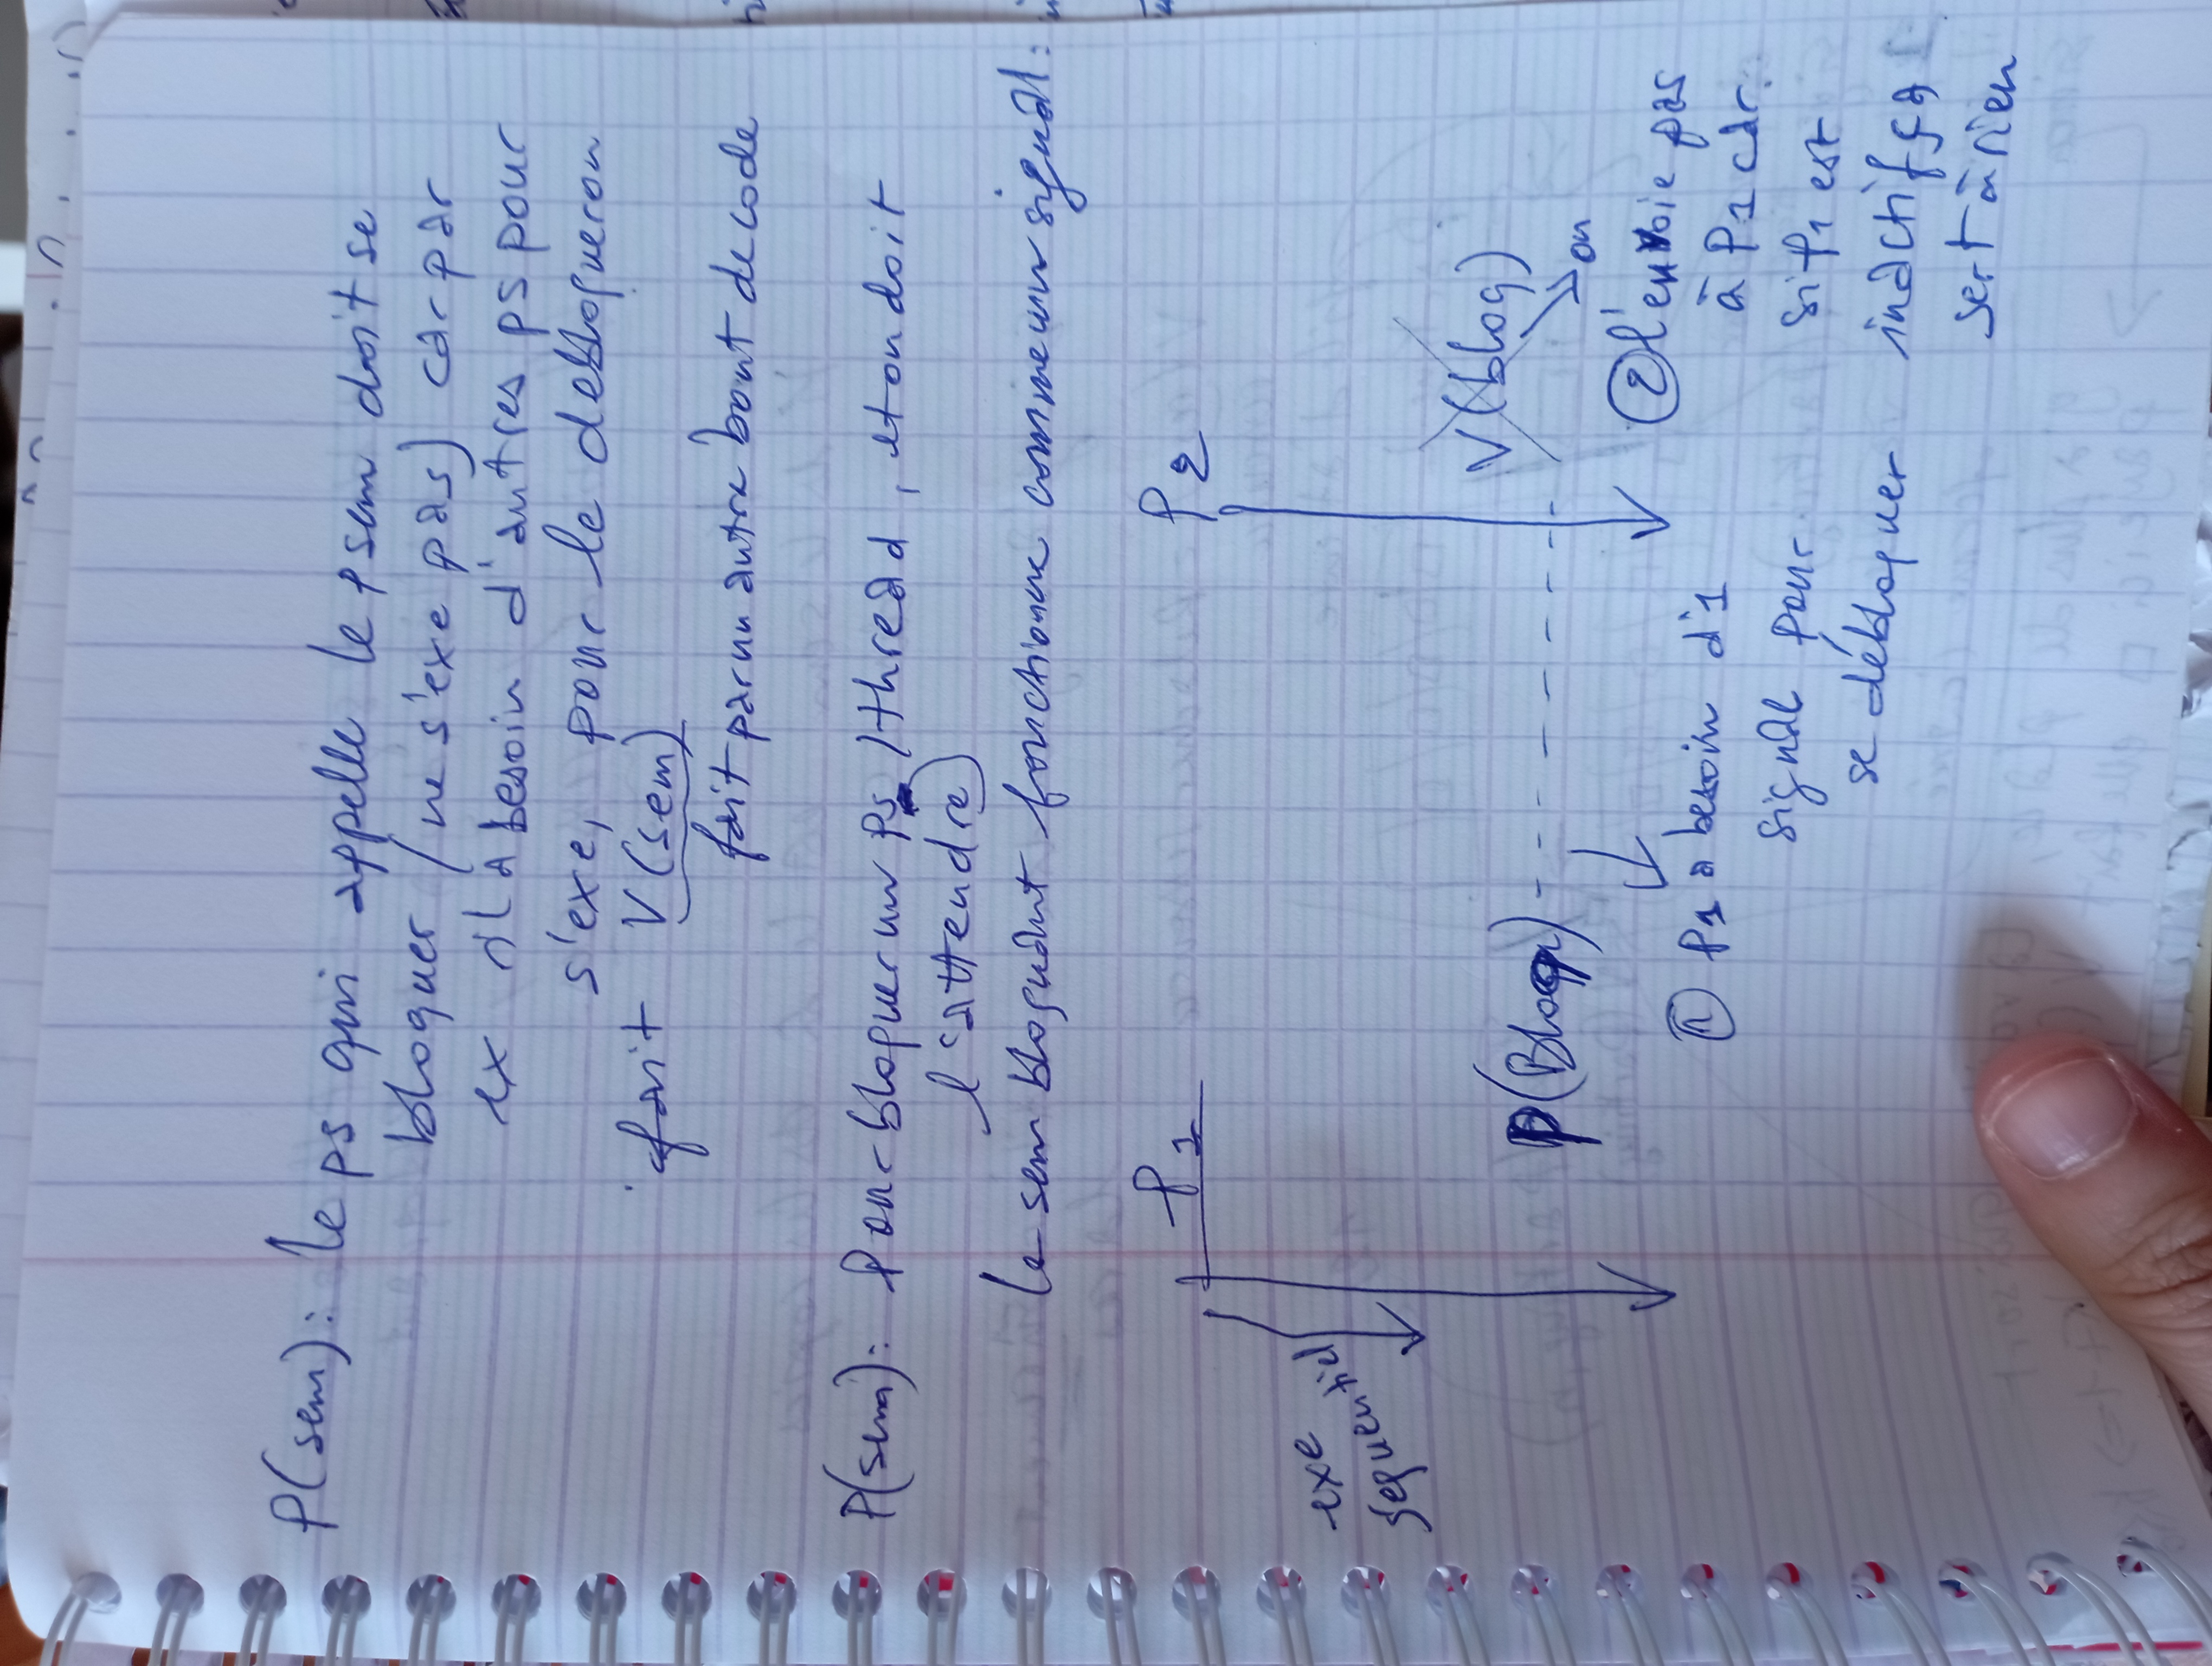 P(sem): le ps qui appelle le psem doit se
bloquer (ne s'exe pas) car par
ex s'il a besoin d'autres ps pour
s'exe, pour le debloqueron
fait V(sem)
fait par un autre bout de code
P(sem): Pour bloquer un ps/thread, et on doit
l'attendre
le sem bloquant fonctionne comme un signal:
P1
P2
exe
sequentiel
V(bloq)
P(Bloq)
on
② l'envoie pas
① P1 a besoin d'1
à P1 car
signal pour
si P1 est
se débloquer
inactif ça
sert à rien